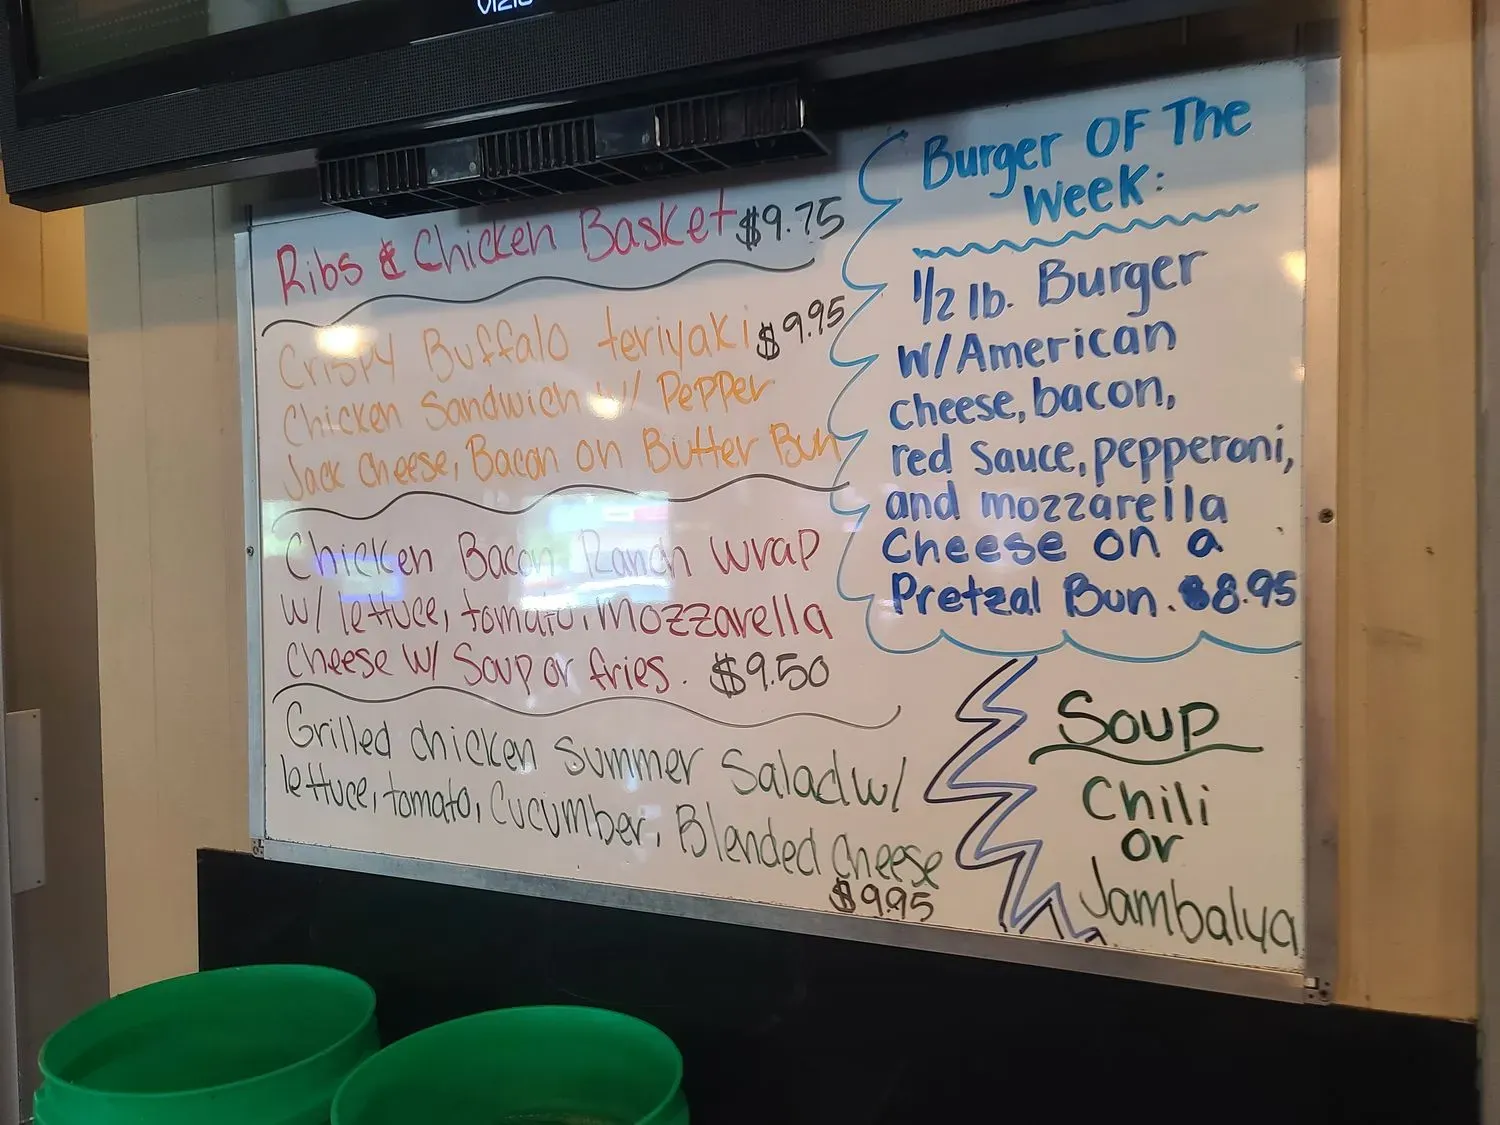 VIZIO
Ribs & Chicken Basket $9.75
Crispy Buffalo teriyaki $9.95
Chicken Sandwich w/ Pepper
Jack Cheese, Bacon on Butter Bun
Chicken Bacon Ranch Wrap
w/ lettuce, tomato, Mozzarella
Cheese w/ Soup or fries. $9.50
Grilled chicken Summer Salad w/
lettuce, tomato, Cucumber, Blended Cheese
$9.95
Burger OF The
Week:
1/2 lb. Burger
w/American
cheese, bacon,
red sauce, pepperoni,
and mozzarella
Cheese on a
Pretzal Bun. $8.95
Soup
Chili
or
Jambalya